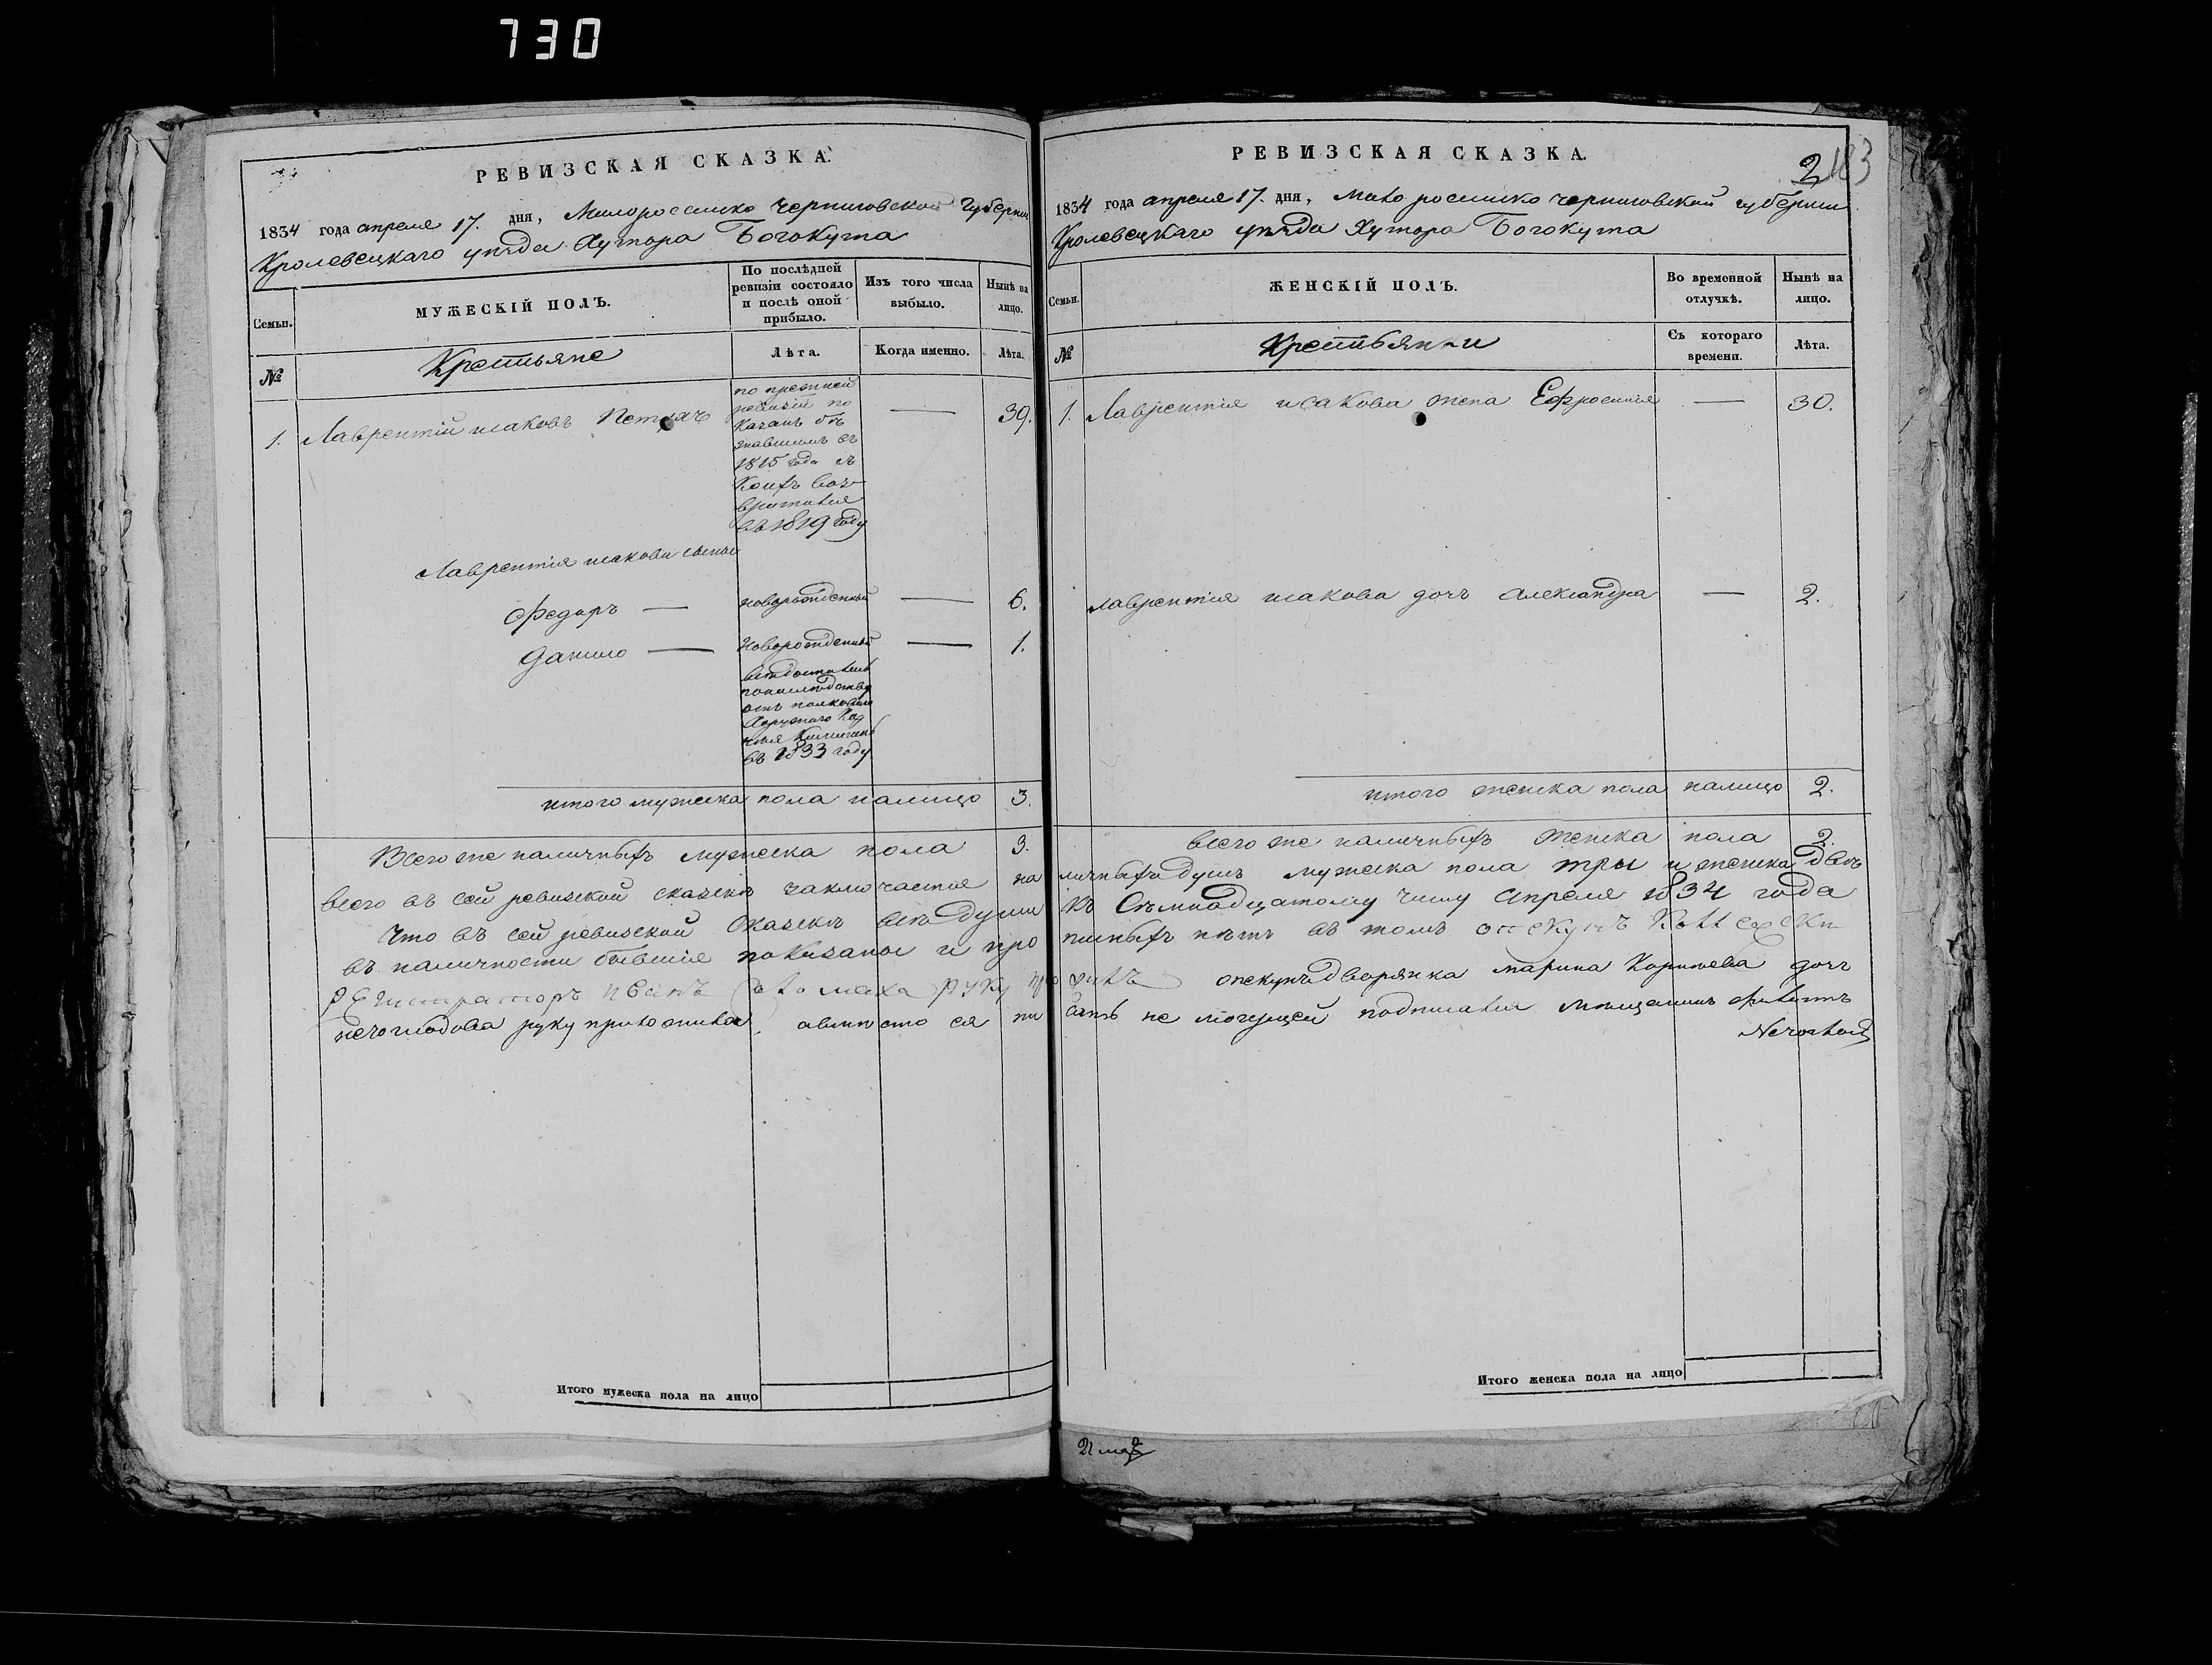 730
РЕВИЗСКАЯ СКАЗКА.
1834 года апреля 17. дня, Малоросийско Черниговской Губернии
Кролевецкаго уѣзда Хутора Богокута
Семьи.
МУЖЕСКІЙ ПОЛЪ.
По послѣдней ревизіи состояло и послѣ оной прибыло.
Изъ того числа выбыло.
Нынѣ на лицо.
№
Крестьяне
Лѣта.
Когда именно.
Лѣта.
1. Лаврентій исаковъ Петрач — 39.
по прежней
ревизіи по
казанъ бѣ
жавшимъ въ
1815 года съ
коихъ воз
вратился
въ 1819 году
Лаврентія исакова сыновья
Федоръ — новорожденный — 6.
Данило — Новорожденный — 1.
въ 1833 году
итого мужеска пола налицо 3.
Всего же наличныхъ мужеска пола 3.
РЕВИЗСКАЯ СКАЗКА.
2
183
1834 года апреля 17. дня, Мало росийско черниговской губернии
Кролевецкаго уѣзда Хутора Богокута
Семьи.
ЖЕНСКІЙ ПОЛЪ.
Во временной отлучкѣ.
Нынѣ на лицо.
№
Крестьянки
Съ котораго времени.
Лѣта.
1. Лаврентія исакова жена Ефросинія — 30.
лаврентія исакова дочь Александра — 2.
итого женска пола налицо 2.
всего же наличныхъ женска пола 2.
всего въ сей ревизской сказкѣ заключается на личныхъ душъ мужеска пола три и женска двѣ
Что въ сей ревизской сказкѣ всѣ души къ Семнадцатому числу Апреля 1834 года
въ наличности бывшіе показаны и про писныхъ нѣтъ въ томъ опекунъ
Регистраторъ иванъ руку опекунъ дворянка марина дочь
руку приложила авместо ея не могущей подписатся мещанинъ
Итого мужеска пола на лицо
Итого женска пола на лицо